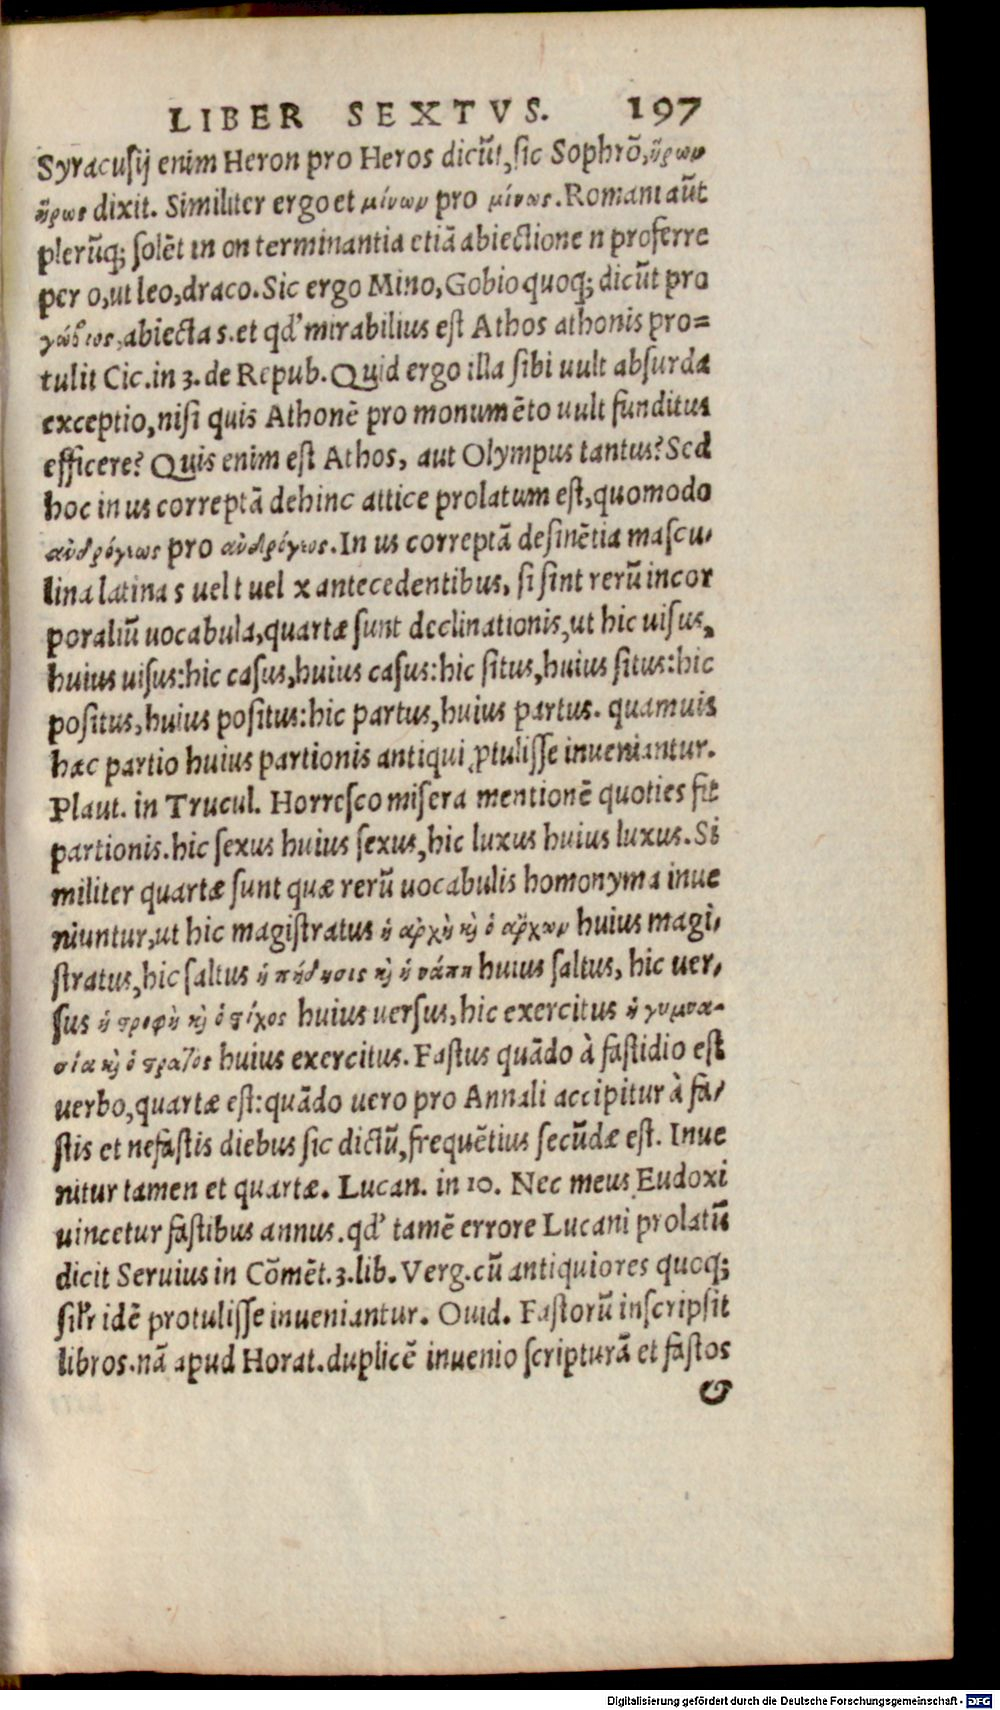 LIBER SEXTVS. 197
Syracusij enim Heron pro Heros dicūt, sic Sophrō, ἥρων
ἥρως dixit. Similiter ergo et μίνων pro μίνως. Romani aūt
plerūq; solēt in on terminantia etiā abiectione n proferre
per o, ut leo, draco. Sic ergo Mino, Gobio quoq; dicūt pro
γώβιος, abiecta s. et qd' mirabilius est Athos athonis pro=
tulit Cic. in 3. de Repub. Quid ergo illa sibi uult absurda
exceptio, nisi quis Athonē pro monumēto uult funditus
efficere? Quis enim est Athos, aut Olympus tantus? Sed
hoc in us correptā dehinc attice prolatum est, quomodo
ανδρόγεως pro ανδρόγεος. In us correptā desinētia mascu,
lina latina s uel t uel x antecedentibus, si sint rerū incor
poraliū uocabula, quartæ sunt declinationis, ut hic uisus,
huius uisus: hic casus, huius casus: hic situs, huius situs: hic
positus, huius positus: hic partus, huius partus. quamuis
hæc partio huius partionis antiqui ꝓtulisse inueniantur.
Plaut. in Trucul. Horresco misera mentionē quoties fit
partionis. hic sexus huius sexus, hic luxus huius luxus. Si
militer quartæ sunt quæ rerū uocabulis homonyma inue
niuntur, ut hic magistratus ἡ αρχὴ κὶ ὁ αῤχων huius magi,
stratus, hic saltus ἡ πήδησις κὶ ἡ νάπη huius saltus, hic uer,
sus ἡ στροφὴ κὶ ὁ στίχος huius uersus, hic exercitus ἡ γυμνα-
σία κὶ ὁ στρατὸς huius exercitus. Fastus quādo à fastidio est
uerbo, quartæ est: quādo uero pro Annali accipitur à fa,
stis et nefastis diebus sic dictū, frequētius secūdæ est. Inue
nitur tamen et quartæ. Lucan. in 10. Nec meus Eudoxi
uincetur fastibus annus. qd' tamē errore Lucani prolatū
dicit Seruius in Cōmēt. 3. lib. Verg. cū antiquiores quoq;
sil'r idē protulisse inueniantur. Ouid. Fastorū inscripsit
libros. nā apud Horat. duplicē inuenio scripturā et fastos
&
Digitalisierung gefördert durch die Deutsche Forschungsgemeinschaft - DFG